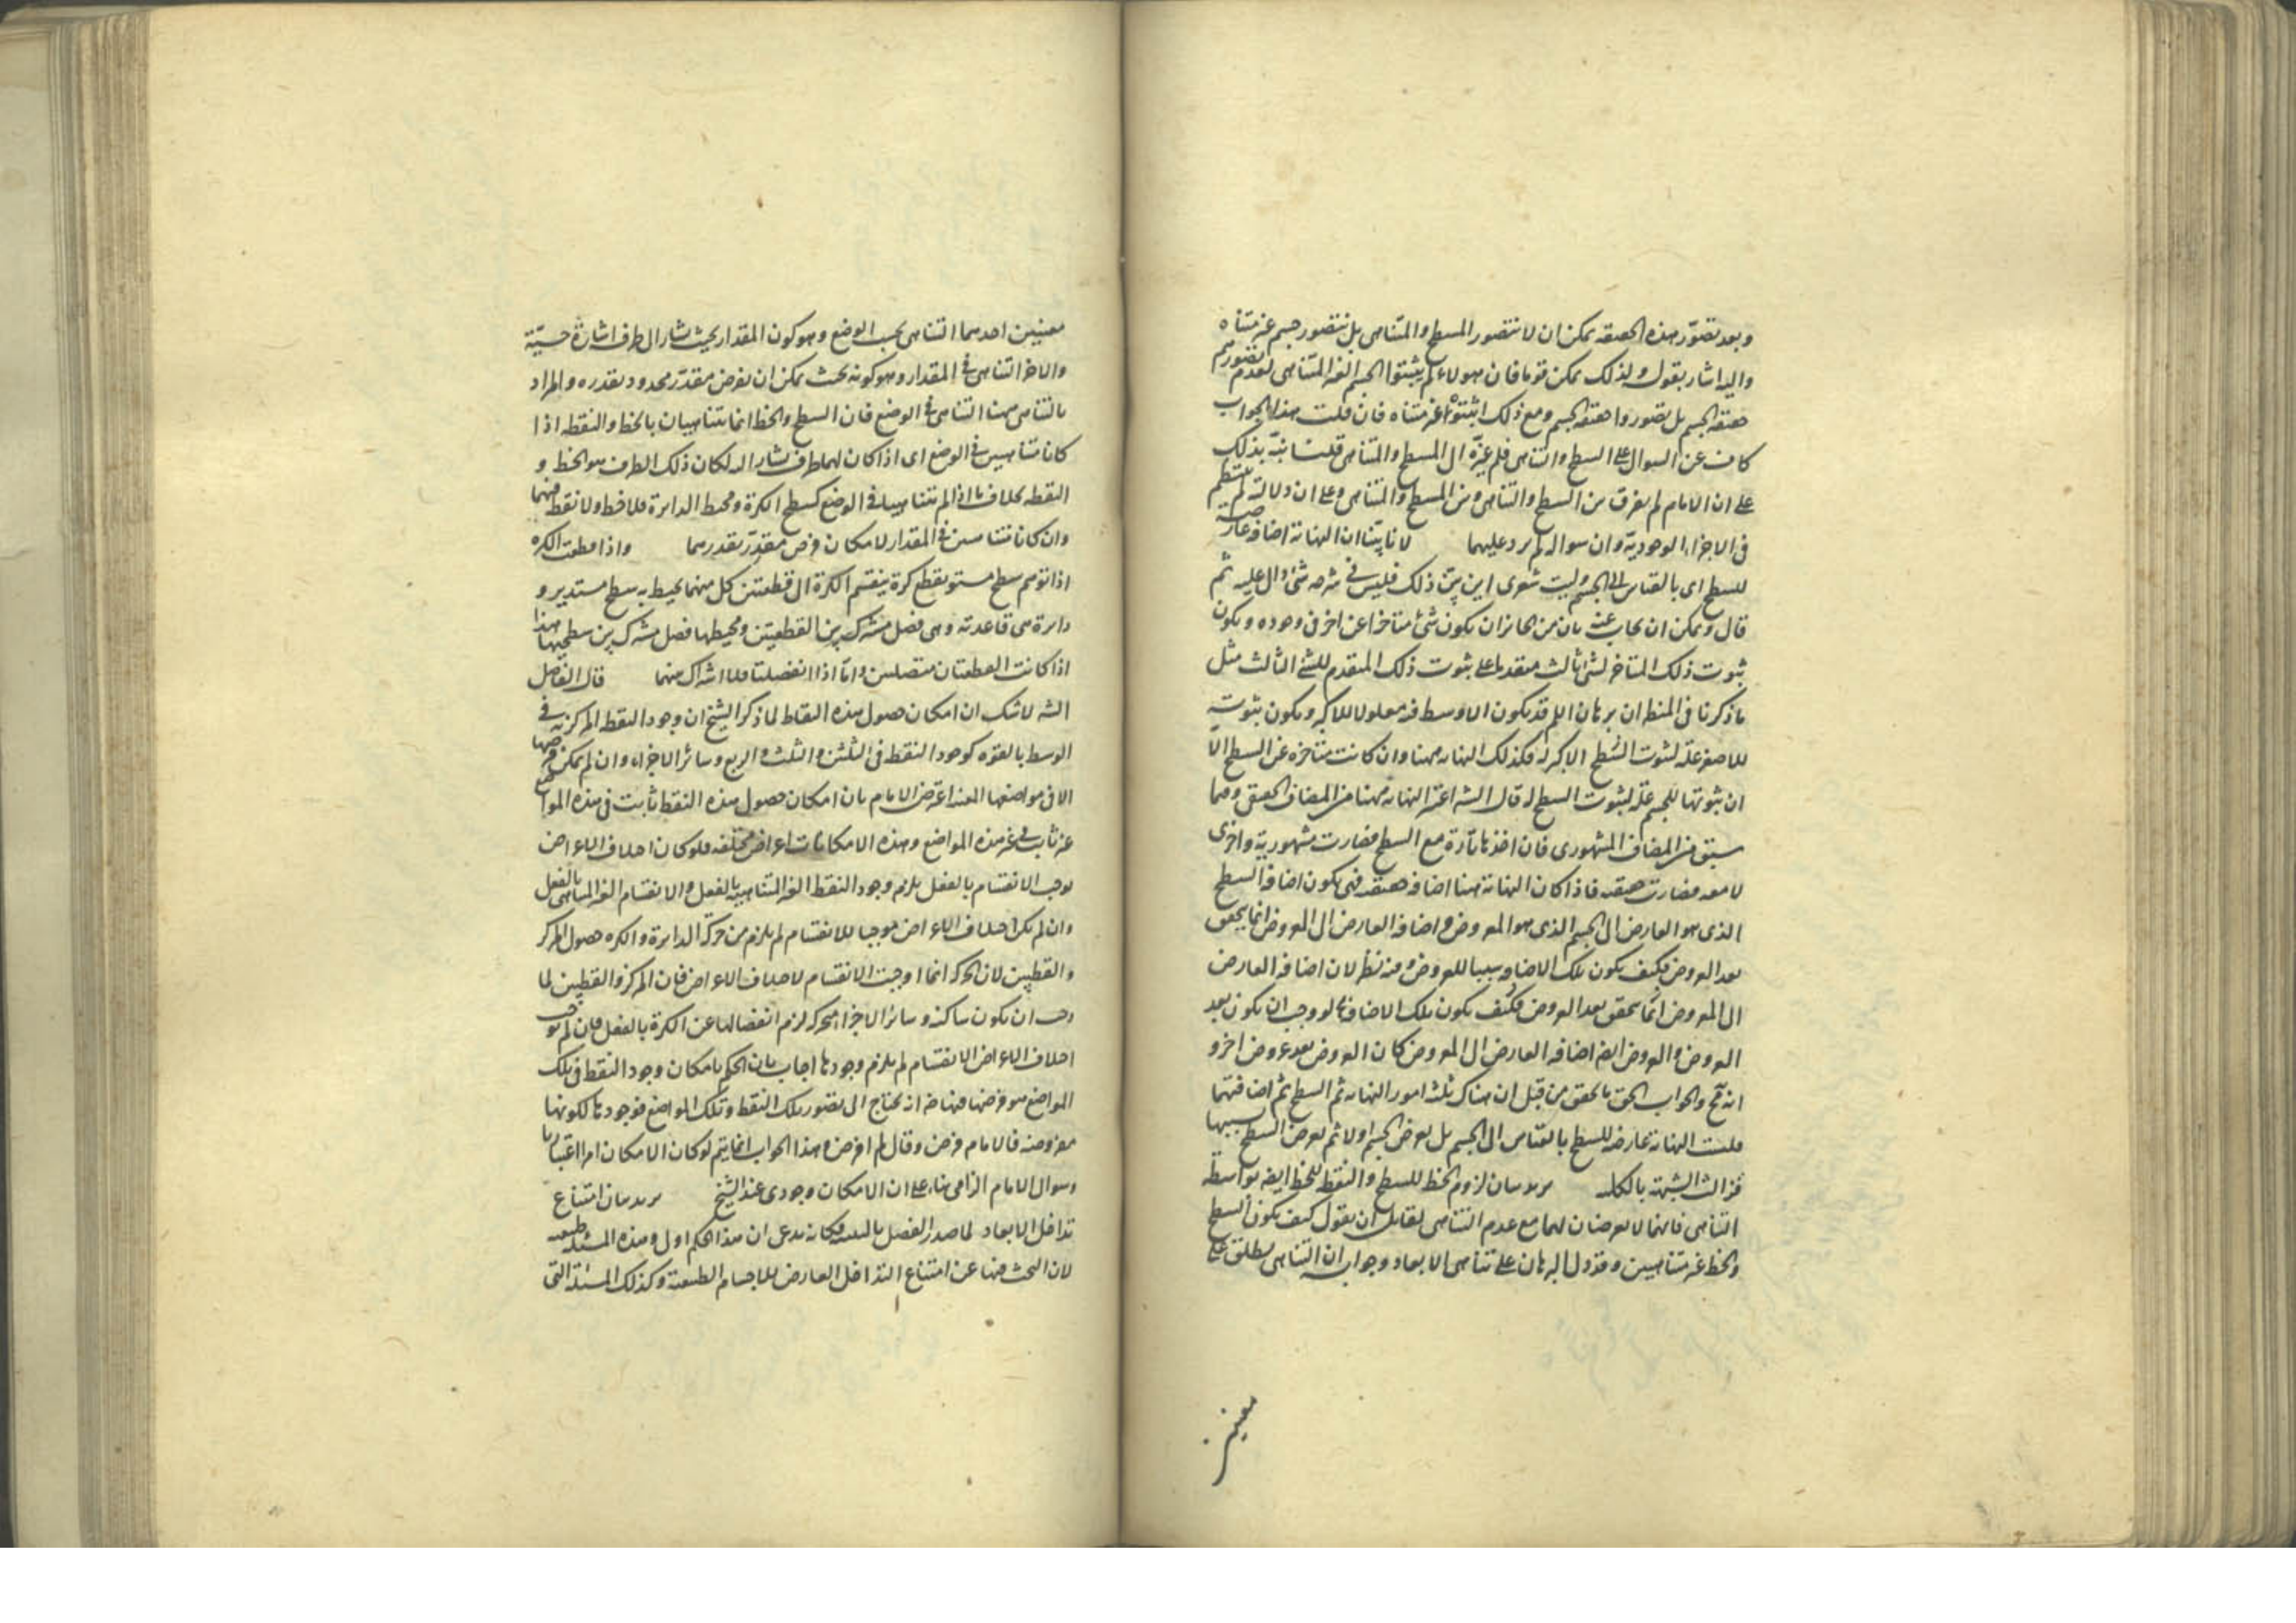 وبعد تصور هذه الحقيقة يمكن ان لا نتصور المسطح والمتناهى بل نتصور جسم غير متناه
واليه اشار بقوله ولذلك يمكن قوما فان هولاء لم يثبتوا الجسم الغير المتناهى لعدم تصورهم
حقيقة الجسم بل تصوروا حقيقة الجسم ومع ذلك اثبتوه غير متناه فان قلت هذا الجواب
كان عن السوال على السطح والتناهى فلم غيره الى المسطح والمتناهى قلت نبه بذلك
على ان الامام لم يفرق بين السطح والتناهى وبين المسطح والمتناهى وعلى ان دلالته لم ينتظم
فى الاجزاء الوجودية وان سواله لم يرد عليهما لانا بينا ان النهاية اضافة عارضة
للسطح اى بالقياس الى الجسم وليت شعرى اين بين ذلك فليس فى شرحه شئ دال عليه ثم
قال ويمكن ان يجاب عنه بان من الجائز ان يكون شئ متاخرا عن اخر فى وجوده ويكون
ثبوت ذلك المتاخر لشئ ثالث متقدما على ثبوت ذلك المتقدم للشئ الثالث مثل
ما ذكرنا فى المنطق ان برهان اللم قد يكون الاوسط فيه معلولا للاكبر ويكون ثبوته
للاصغر علة لثبوت الاكبر له فكذلك النهاية ههنا وان كانت متاخرة عن السطح الا
ان ثبوتها للجسم علة لثبوت السطح له قال الش اعتبر النهاية ههنا من المضاف الحقيقى وفيما
سبق من المضاف المشهورى فان اخذها تارة مع السطح فصارت مشهورية واخرى
لا معه فصارت حقيقة فاذا كان النهاية ههنا اضافة حقيقة فهى يكون اضافة السطح
الذى هو العارض الى الجسم الذى هو المعروض واضافة العارض الى المعروض انما يتحقق
بعد العروض فكيف يكون تلك الاضافة سببا للعروض وفيه نظر لان اضافة العارض
الى المعروض انما يتحقق بعد العروض فكيف يكون تلك الاضافة لو وجب ان يكون بعد
العروض والعروض ايضا اضافة العارض الى المعروض كان العروض بعد عروض اخر و
انه مح والجواب الحق ما تحقق من قبل ان هناك ثلثة امور النهاية ثم السطح ثم اضافتهما
فليست النهاية عارضة للسطح بالقياس الى الجسم بل يعرض الجسم اولا ثم يعرض السطح بسببها
فزالت الشبهة بالكلية يريد بيان لزوم الخط للسطح والنقطة للخط ايضا بواسطة
التناهى فانهما لا يعرضان لهما مع عدم التناهى لقائل ان يقول كيف يكون السطح
والخط غير متناهيين وقد دل البرهان على تناهى الابعاد وجوابه ان التناهى يطلق على
معنيين
معنيين احدهما التناهى بحسب الوضع وهو كون المقدار بحيث يشار الى طرفه اشارة حسية
والاخر التناهى فى المقدار وهو كونه بحيث يمكن ان يفرض مقدر محدود يقدره والمراد
بالتناهى ههنا التناهى فى الوضع فان السطح والخط انما يتناهيان بالخط والنقطة اذا
كانا متناهيين فى الوضع اى اذا كان لهما طرف يشار اليه لكان ذلك الطرف هو الخط و
النقطة بخلاف ما اذا لم يتناهيا فى الوضع كسطح الكرة ومحيط الدايرة فلا خط ولا نقطة فيهما
وان كانا متناهيين فى المقدار لامكان فرض مقدر يقدرهما واذا قطعت الكرة
اذا توهم سطح مستو يقطع كرة ينقسم الكرة الى قطعتين كل منهما يحيط به سطح مستدير و
دايرة هى قاعدته وهى فصل مشترك بين القطعتين ومحيطها فصل مشترك بين سطحيها هذا
اذا كانت القطعتان متصلتين واما اذا انفصلتا فلا اشتراك بينهما قال الفاضل
الش لا شك ان امكان حصول هذه النقاط لما ذكر الشيخ ان وجود النقطة المركزية فى
الوسط بالقوة كوجود النقطة فى الثلثين والثلث والربع وسائر الاجزاء وان لم يمكن فرضها
الا فى مواضعها المعينة اعترض الامام بان امكان حصول هذه النقط ثابت فى هذه المواضع
غير ثابت فى غير هذه المواضع وهذه الامكانات اعراض مختلفة فلو كان اختلاف الاعراض
يوجب الانقسام بالفعل يلزم وجود النقط الغير المتناهية بالفعل والانقسام الغير المتناهى بالفعل
وان لم يكن اختلاف الاعراض موجبا للانقسام لم يلزم من حركة الدايرة والكرة حصول المركز
والقطبين لان الحركة انما اوجبت الانقسام لاختلاف الاعراض فان المركز والقطبين لما
وجب ان يكون ساكنة وسائر الاجزاء متحركة لزم انفصالها عن الكرة بالفعل فان لم يوجب
اختلاف الاعراض الانقسام لم يلزم وجودها اجاب بان الحكم بامكان وجود النقط فى تلك
المواضع هو فرضها فيها فانه يحتاج الى تصور تلك النقط وتلك المواضع فوجودها لكونها
مفروضة فالامام فرض وقال لم افرض وهذا الجواب انما يتم لو كان الامكان امرا اعتباريا
وسوال الامام الزامى بناء على ان الامكان وجودى عند الشيخ يريد بيان امتناع
تداخل الابعاد لما صدر الفصل بالتنبيه فكانه يدعى ان هذا الحكم اولى وهذه المسئلة طبيعية
لان البحث فيها عن امتناع التداخل العارض للاجسام الطبيعية وكذلك المسئلة التى